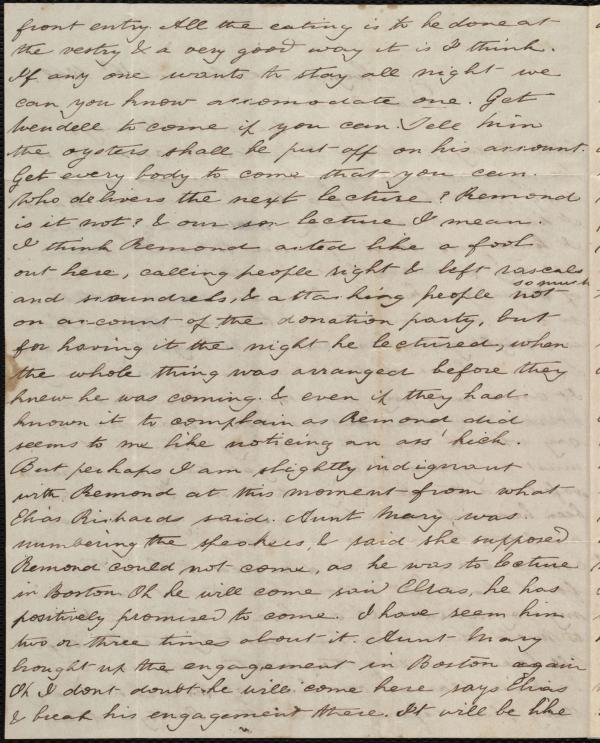 front entry. All the eating is to be done at
the vestry & a very good way it is I think.
If any one wants to stay all night we
can you know accomodate one. Get
Wendell to come if you can. Tell him
the oysters shall be put off on his account.
Get every body to come that you can.
Who delivers the next lecture? Remond
is it not? & our lecture I mean.
I think Remond acted like a fool
out here, calling people right & left rascals
and scoundrels, & attacking people not so much
on account of the donation party, but
for having it the night he lectured, when
the whole thing was arranged before they
knew he was coming. & even if they had
known it to complain as Remond did
seems to me like noticing an ass' kick.
But perhaps I am slightly indignant
with Remond at this moment from what
Elias Richards said. Aunt Mary was
numbering the speakers, & said she supposed
Remond could not come, as he was to lecture
in Boston. Oh he will come said Elias, he has
positively promised to come. I have seem him
two or three times about it. Aunt Mary
brought up the engagement in Boston again
Oh I dont doubt he will come here says Elias
& break his engagement there. It will be like